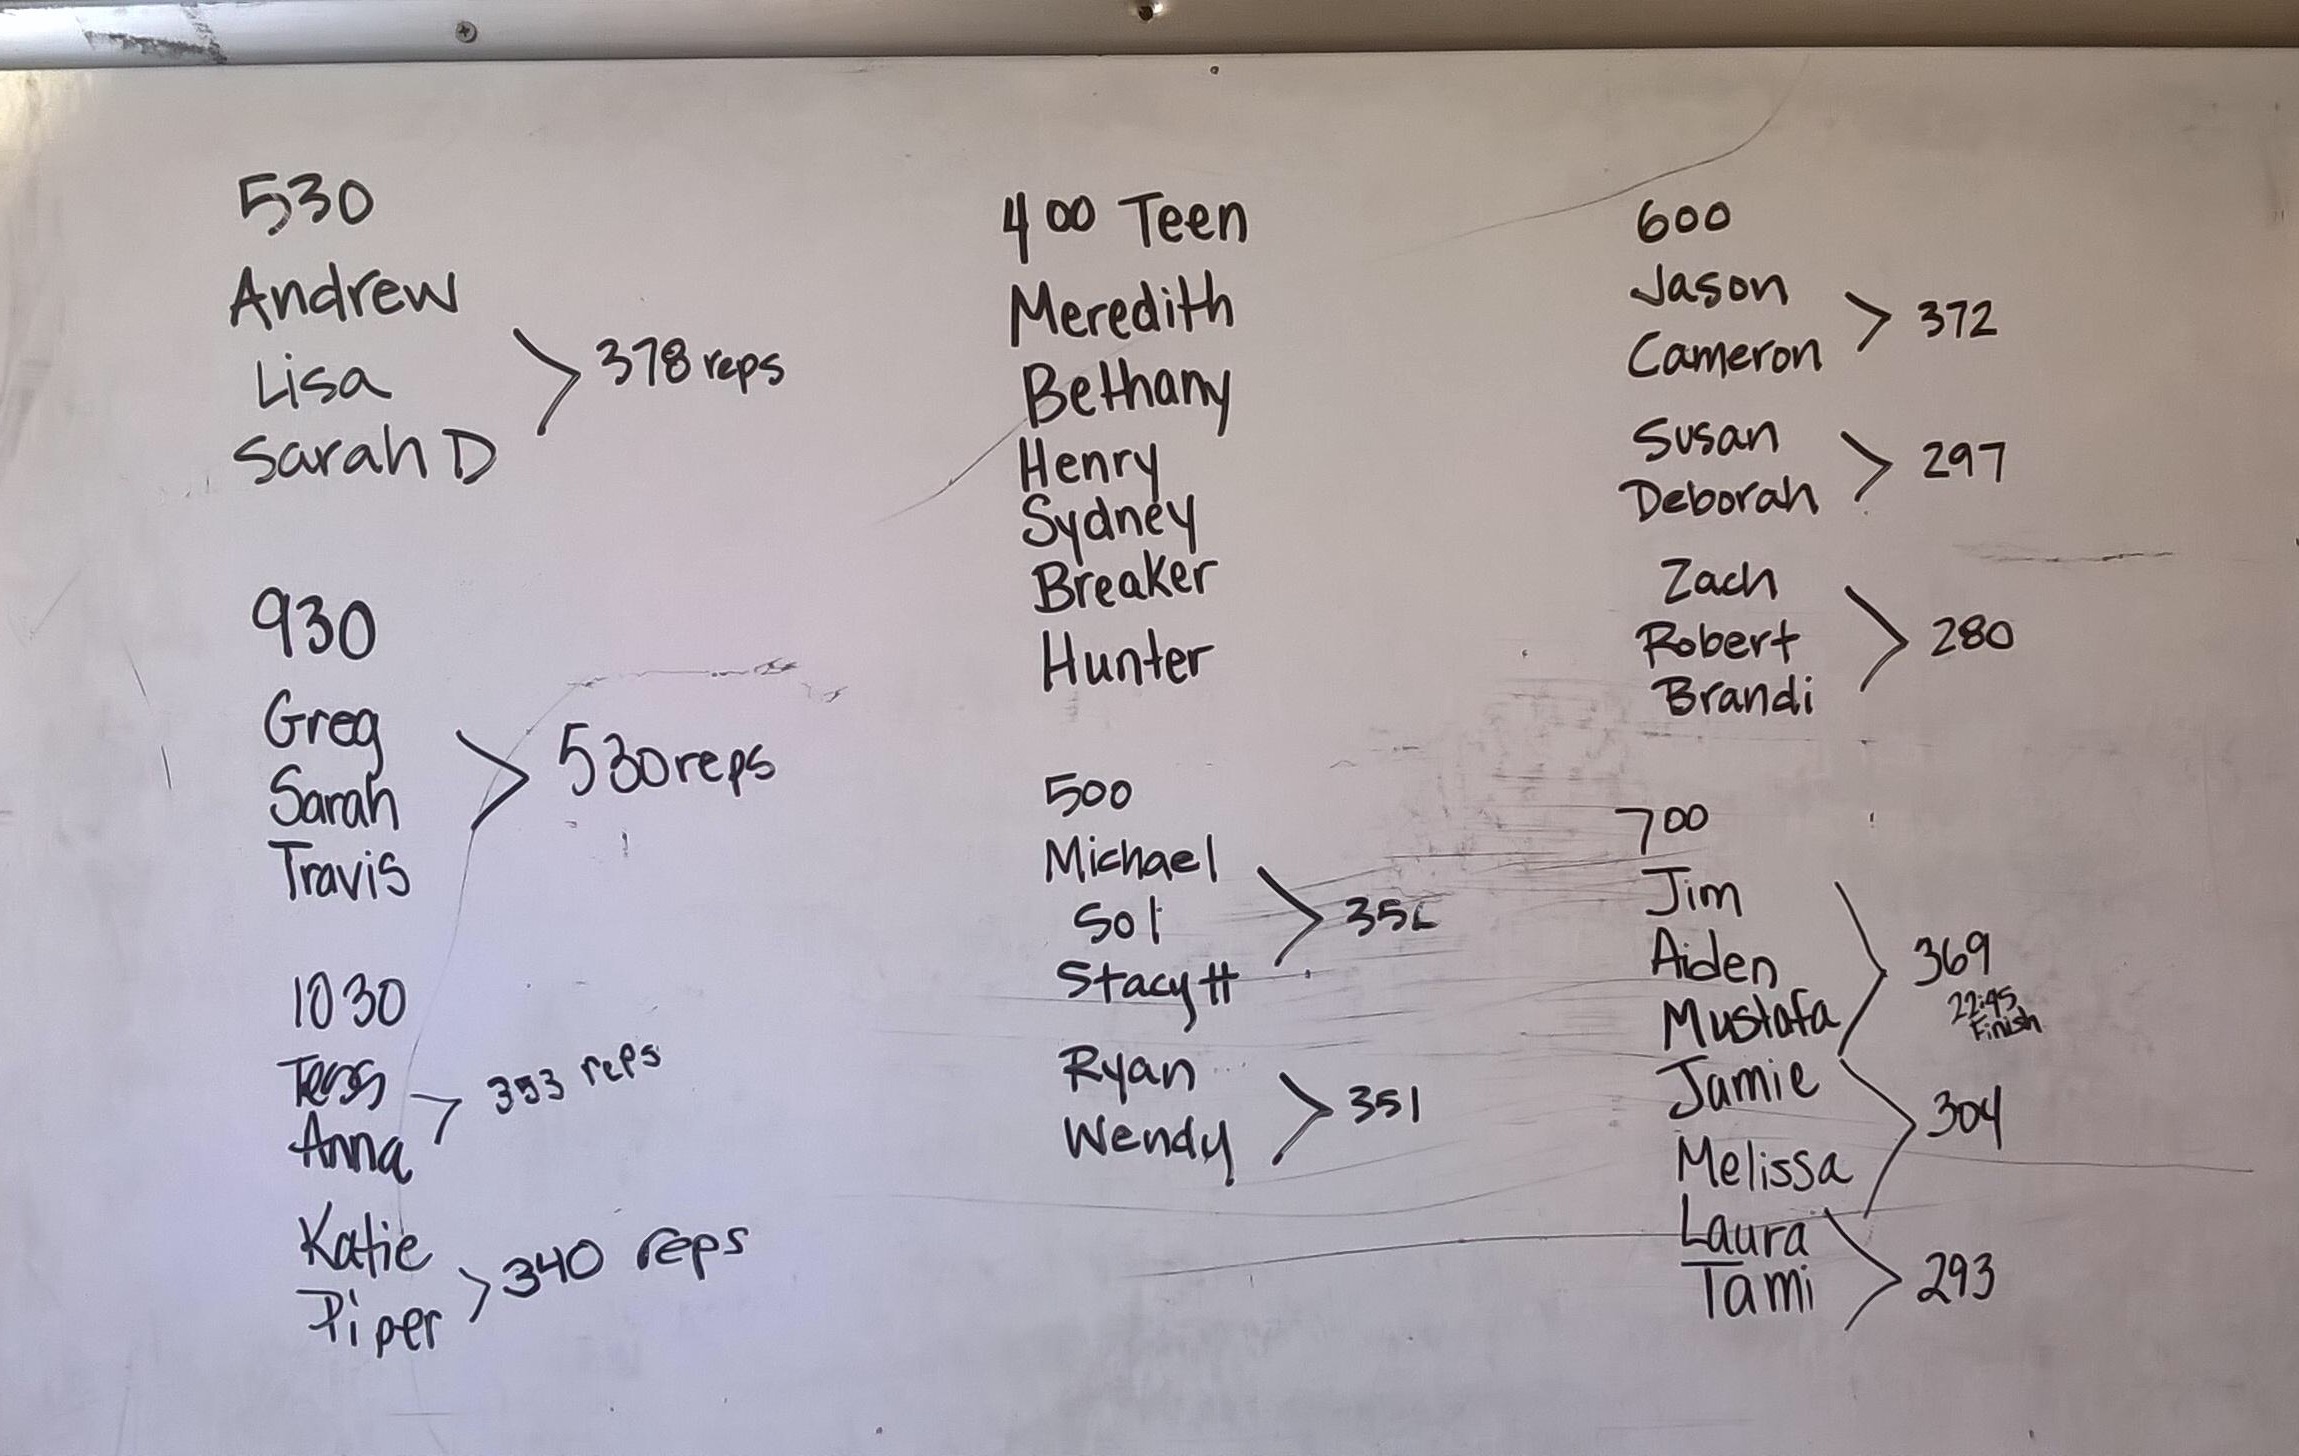 530
Andrew
Lisa
Sarah D
378 reps
930
Greg
Sarah
Travis
530 reps
1030
Tess
Anna
353 reps
Katie
Piper
340 reps
400 Teen
Meredith
Bethany
Henry
Sydney
Breaker
Hunter
500
Michael
Sol
Stacy H
Ryan
Wendy
351
600
Jason
Cameron
372
Susan
Deborah
297
Zach
Robert
Brandi
280
700
Jim
Aiden
Mustafa
369
22:45
Finish
Jamie
Melissa
304
Laura
Tami
293